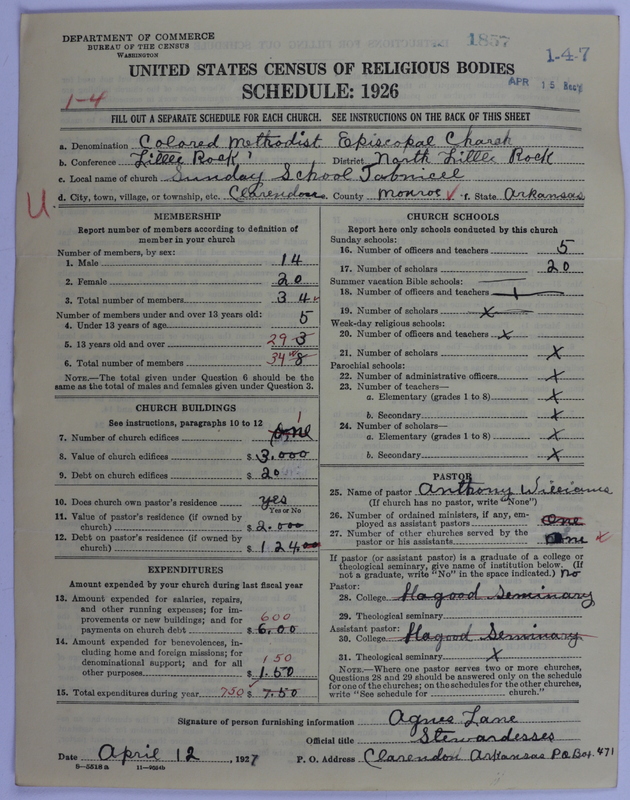 DEPARTMENT OF COMMERCE
BUREAU OF THE CENSUS
WASHINGTON
1857
1-4-7
APR 15
UNITED STATES CENSUS OF RELIGIOUS BODIES
SCHEDULE: 1926
1-4
FILL OUT A SEPARATE SCHEDULE FOR EACH CHURCH. SEE INSTRUCTIONS ON THE BACK OF THIS SHEET
a. Denomination Colored Methodist Episcopal Church
b. Conference Little Rock District North Little Rock
c. Local name of church Sunday School Tabnicel
d. City, town, village, or township, etc. Clarendon e. County Monroe f. State Arkansas
U
MEMBERSHIP
Report number of members according to definition of member in your church
Number of members, by sex:
1. Male 14
2. Female 20
3. Total number of members 34
Number of members under and over 13 years old:
4. Under 13 years of age 5
5. 13 years old and over 29 3
6. Total number of members 34 8
NOTE.—The total given under Question 6 should be the same as the total of males and females given under Question 3.
CHURCH BUILDINGS
See instructions, paragraphs 10 to 12
7. Number of church edifices one 1
8. Value of church edifices $ 3.000
9. Debt on church edifices $ 20
10. Does church own pastor's residence yes
Yes or No
11. Value of pastor's residence (if owned by church) $ 2.000
12. Debt on pastor's residence (if owned by church) $ 124
EXPENDITURES
Amount expended by your church during last fiscal year
13. Amount expended for salaries, repairs, and other running expenses; for improvements or new buildings; and for payments on church debt 600 $ 6.00
14. Amount expended for benevolences, including home and foreign missions; for denominational support; and for all other purposes 150 $ 1.50
15. Total expenditures during year 750 $ 7.50
CHURCH SCHOOLS
Report here only schools conducted by this church
Sunday schools:
16. Number of officers and teachers 5
17. Number of scholars 20
Summer vacation Bible schools:
18. Number of officers and teachers
19. Number of scholars x
Week-day religious schools:
20. Number of officers and teachers x
21. Number of scholars x
Parochial schools:
22. Number of administrative officers x
23. Number of teachers—
a. Elementary (grades 1 to 8) x
b. Secondary x
24. Number of scholars—
a. Elementary (grades 1 to 8) x
b. Secondary x
PASTOR
25. Name of pastor Anthony Williams
(If church has no pastor, write "None")
26. Number of ordained ministers, if any, employed as assistant pastors one
27. Number of other churches served by the pastor or his assistants x
If pastor (or assistant pastor) is a graduate of a college or theological seminary, give name of institution below. (If not a graduate, write "No" in the space indicated.) no
Pastor:
28. College Hagood Seminary
29. Theological seminary
Assistant pastor:
30. College Hagood Seminary
31. Theological seminary x
NOTE.—Where one pastor serves two or more churches, Questions 28 and 29 should be answered only on the schedule for one of the churches; on the schedules for the other churches, write "See schedule for church."
Signature of person furnishing information Agnes Lane
Official title Stewardesses
Date April 12, 1927 P. O. Address Clarendon Arkansas P.O Box. 471
8-5518 a